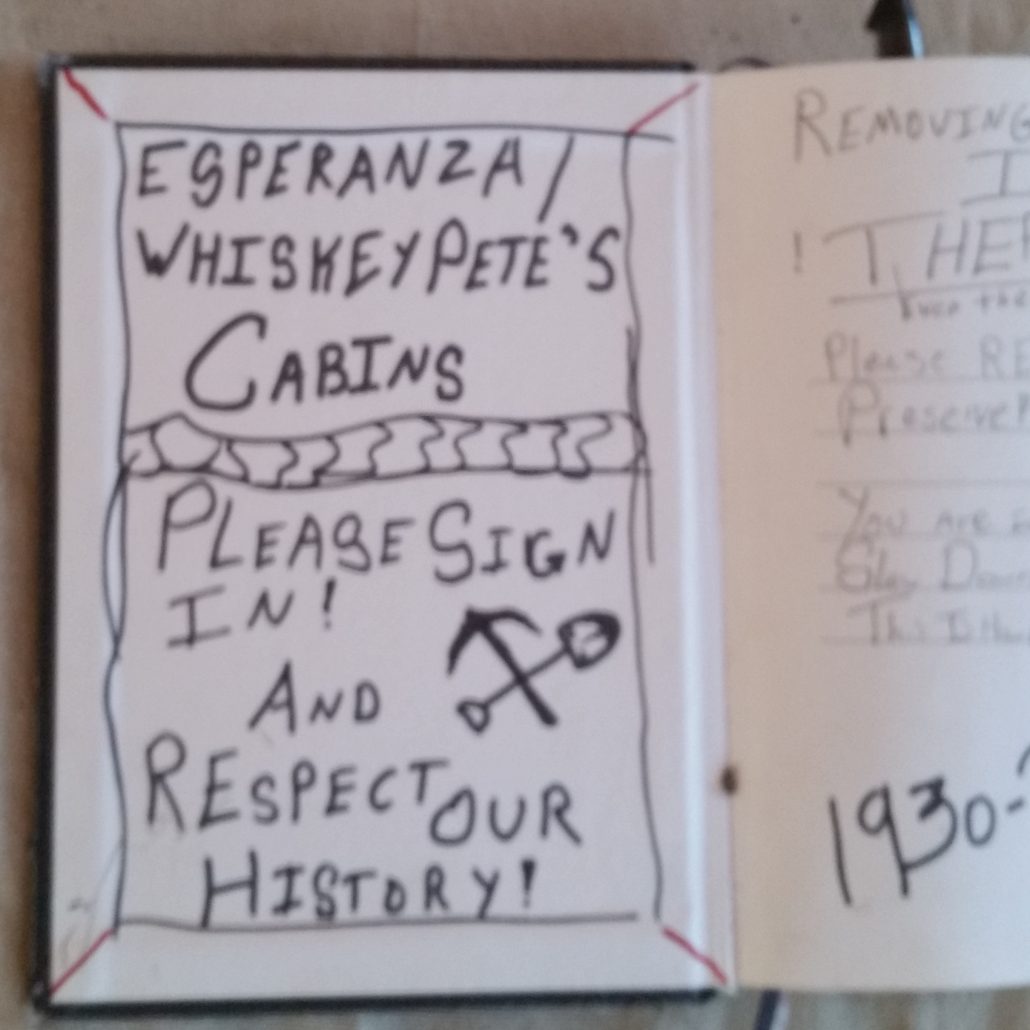 ESPERANZA/
WHISKEY PETE'S
CABINS
PLEASE SIGN
IN!
AND
RESPECT OUR
HISTORY!
REMOVING
I
! THE
Please RE
Preserve
You are
Stay Down
This Is the
1930-